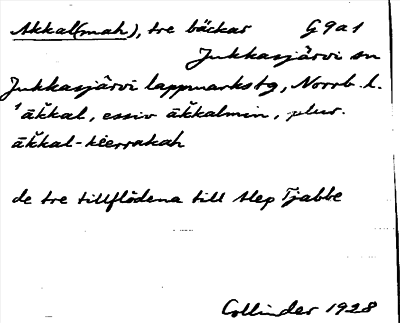 Akkal(mah), tre bäckar G9a1
Jukkasjärvi sn
Jukkasjärvi lappmarkstg, Norrb. l.
ˈāk̆kal, essiv āk̆kalmin, plur.
āk̆kal-kierrakah
de tre tillflödena till Alep Tjabbe
Collinder 1928